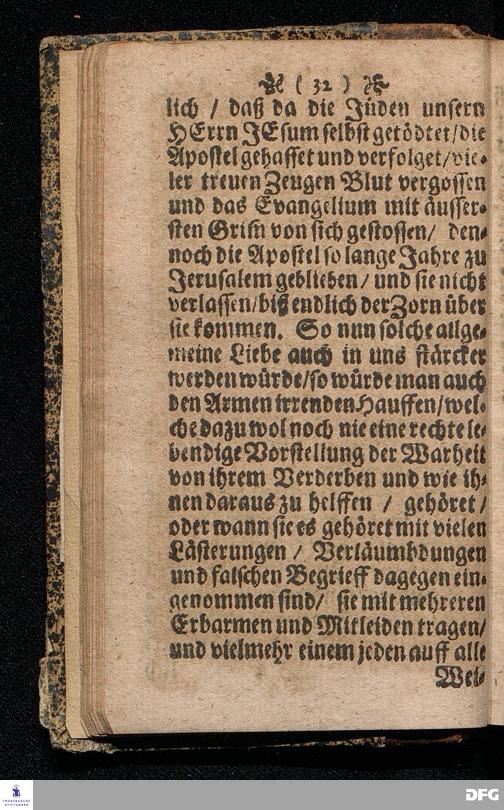 ( 32 )
lich / daß da die Jüden unsern
HErrn JEsum selbst getödtet/die
Apostel gehasset und verfolget/vie-
ler treuen Zeugen Blut vergossen
und das Evangelium mit äusser-
sten Grim von sich gestossen/ den-
noch die Apostel so lange Jahre zu
Jerusalem geblieben/ und sie nicht
verlassen/biß endlich der Zorn über
sie kommen. So nun solche allge-
meine Liebe auch in uns stärcker
werden würde/so würde man auch
den Armen irrenden Hauffen/wel-
che dazu wol noch nie eine rechte le-
bendige Vorstellung der Warheit
von ihrem Verderben und wie ih-
nen daraus zu helffen / gehöret/
oder wann sie es gehöret mit vielen
Lästerungen / Verläumbdungen
und falschen Begrieff dagegen ein-
genommen sind/ sie mit mehreren
Erbarmen und Mitleiden tragen/
und vielmehr einem jeden auff alle
Wei-
FRANCKESCHE
STIFTUNGEN
DFG